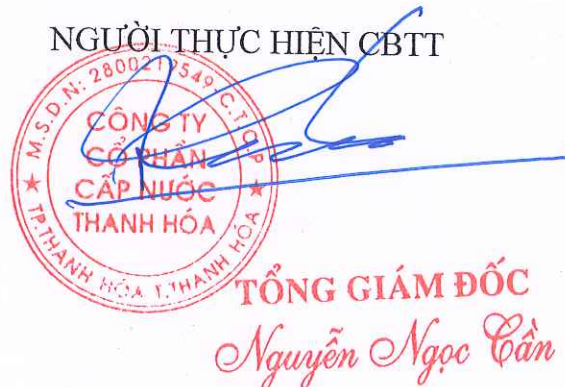 NGƯỜI THỰC HIỆN CBTT
M.S.D.N: 2800219549.C.T.C.P
CÔNG TY
CỔ PHẦN
CẤP NƯỚC
THANH HÓA
TP.THANH HÓA T.THANH HÓA
TỔNG GIÁM ĐỐC
Nguyễn Ngọc Cần